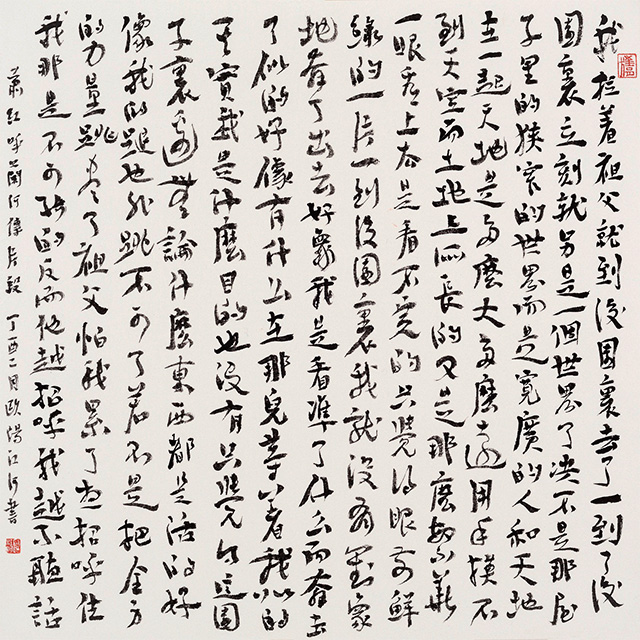 我拉着祖父就到後園裏去了一到了後
園裏立刻就另是一個世界了決不是那房
子里的狹窄的世界而是寬廣的人和天地
在一起天地是多麼大多麼遠用手摸不
到天空而土地上所長的又是那麼繁華
一眼看上去是看不完的只覺得眼前鮮
綠的一片一到後園裏我就沒有對象
地奔了出去好象我是看準了什么而奔去
了似的好像有什么在那兒等着我似的
其實我是什麼目的也沒有只覺得這園
子裏邊無論什麼東西都是活的好
像我的腿也非跳不可了若不是把全身
的力量跳盡了祖父怕我累了想招呼住
我那是不可能的反而他越招呼我越不聽話
蕭紅呼蘭河傳片段 丁酉二月歐陽江河書